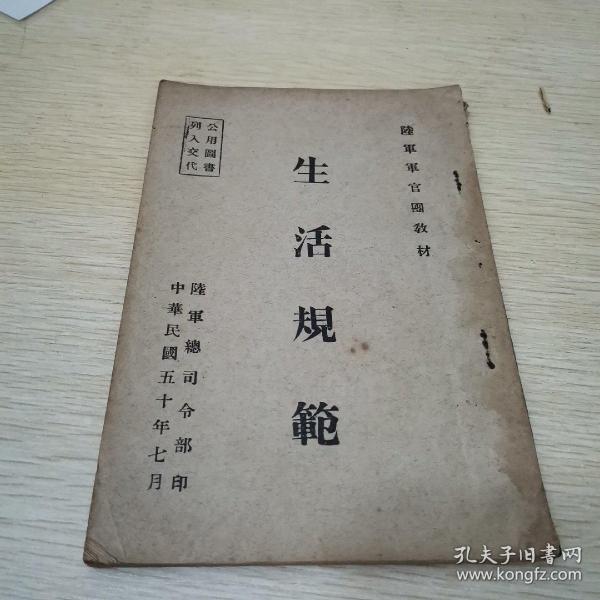 陸軍軍官團教材
生活規範
公用圖書
列入交代
陸軍總司令部印
中華民國五十年七月
孔夫子旧书网
www.kongfz.com